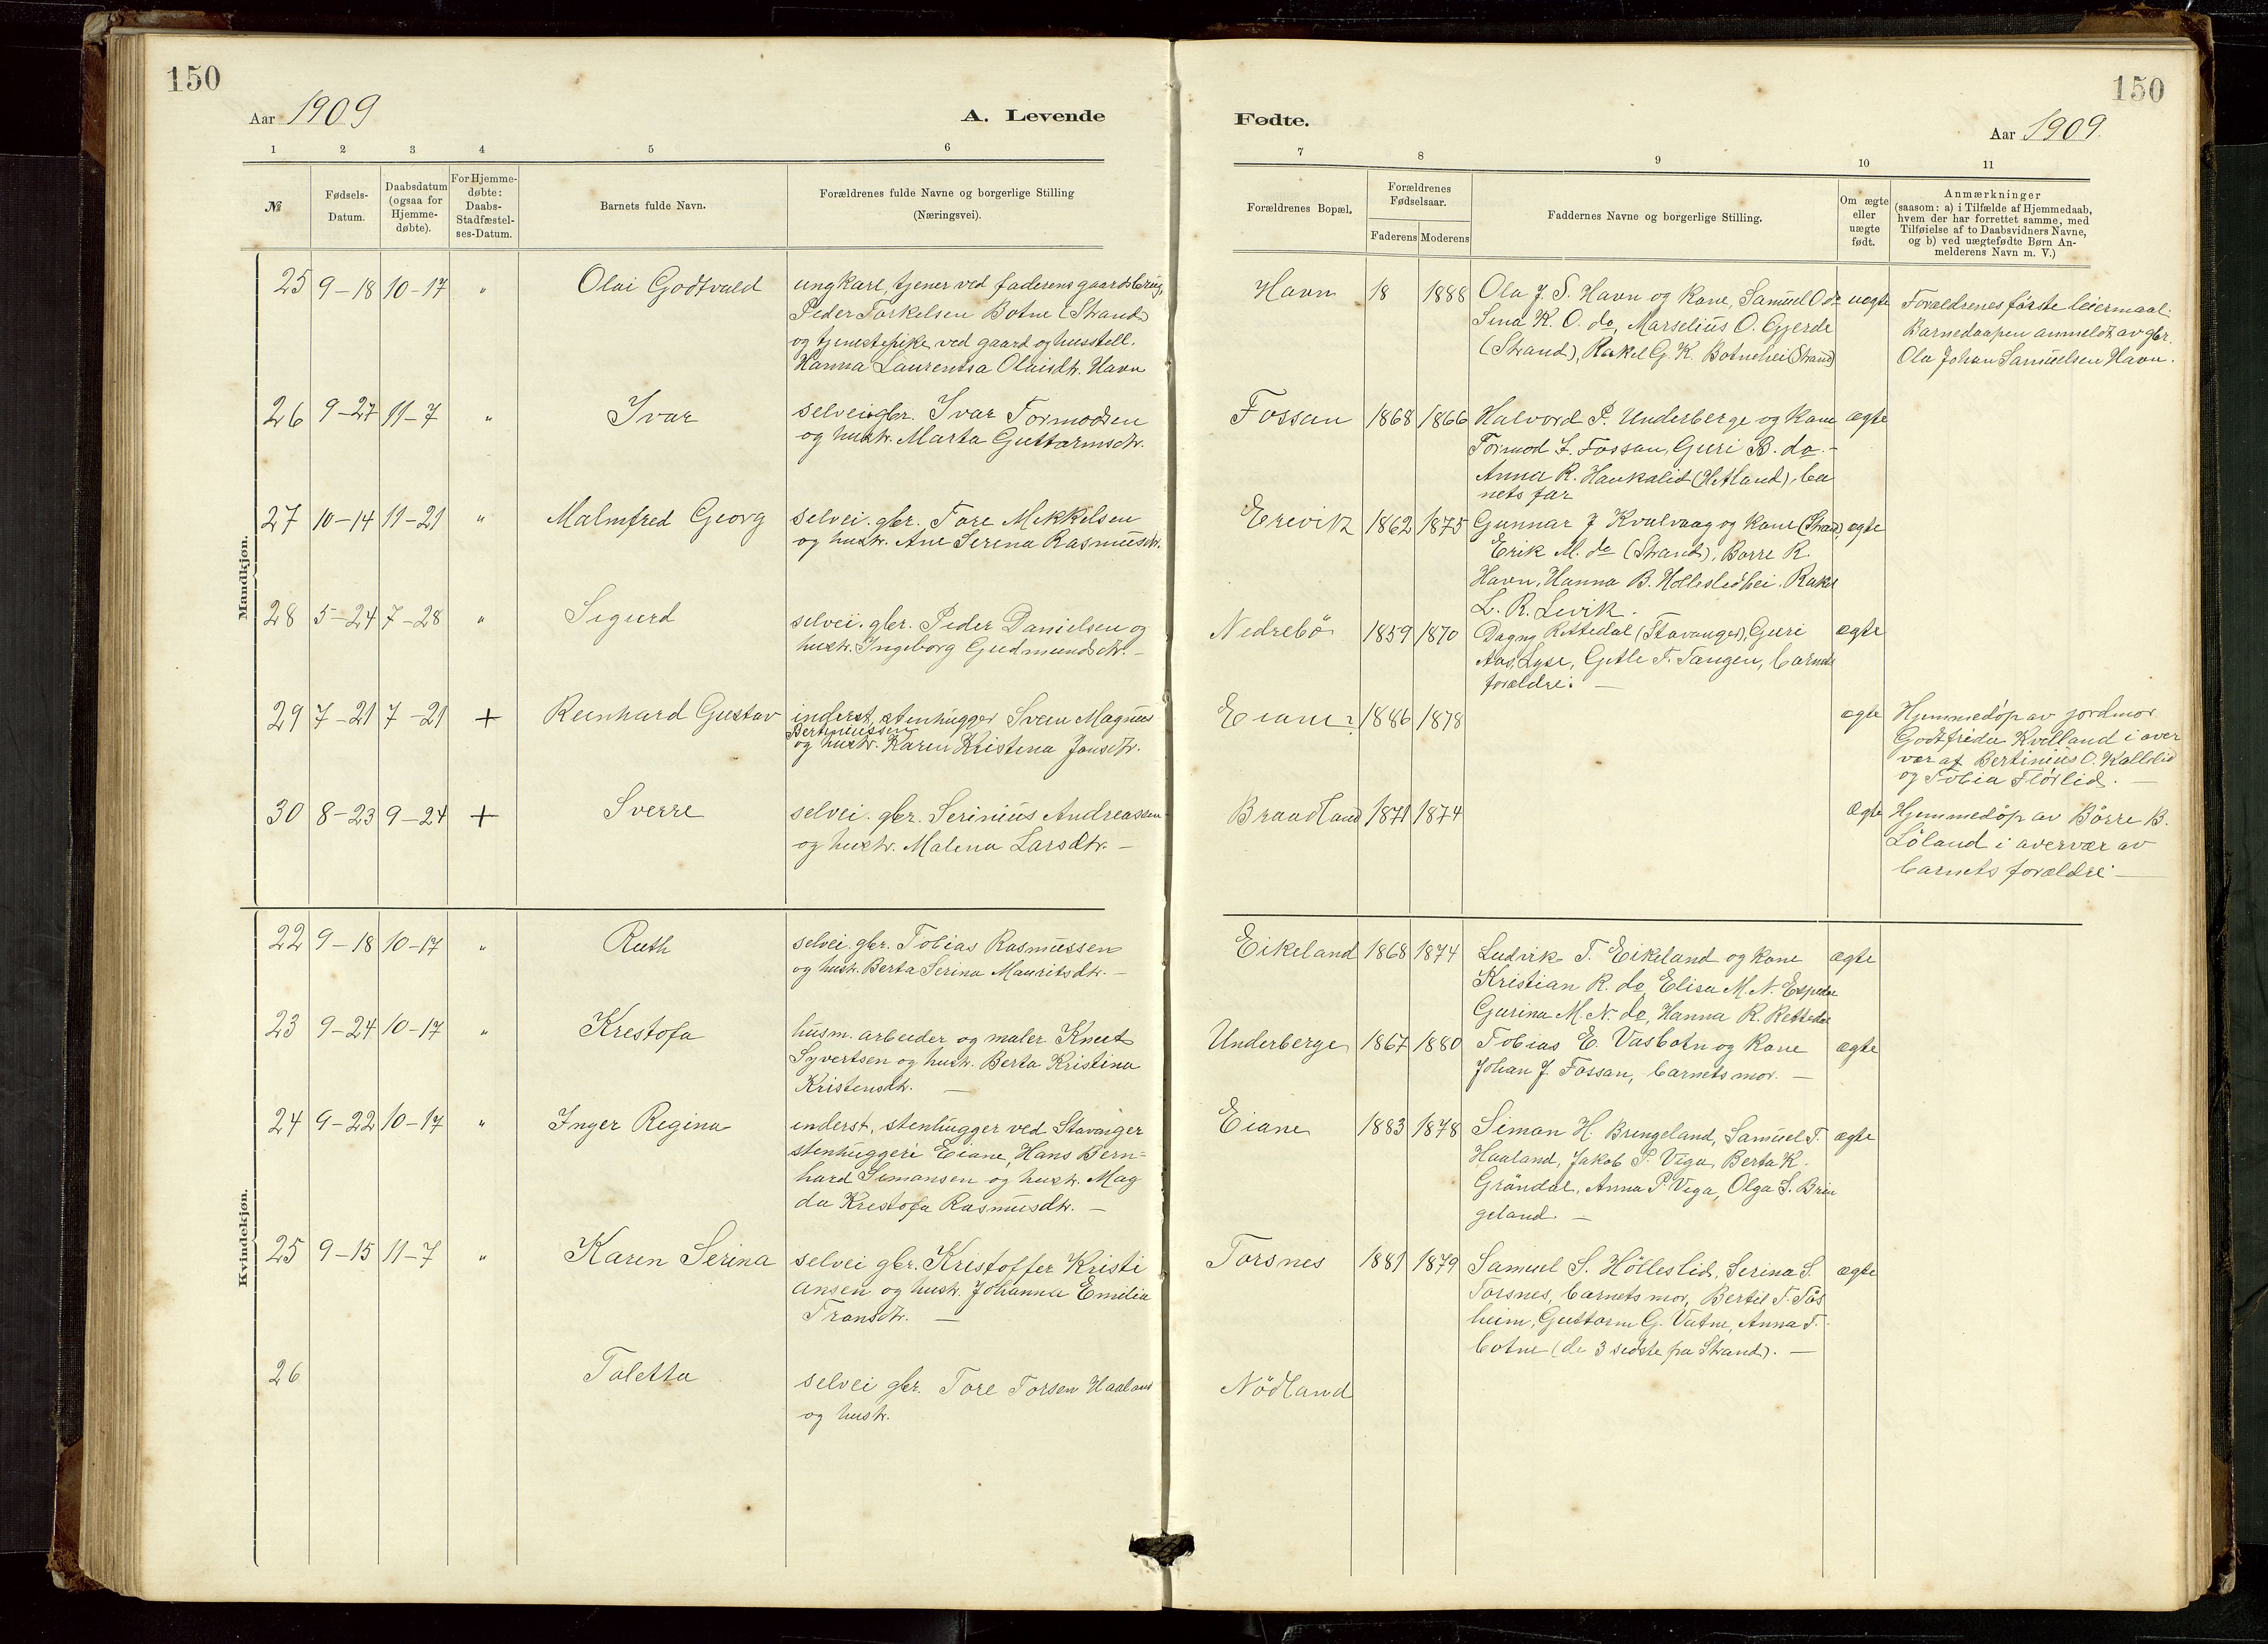 150
Aar 1909
A. Levende
1 2 3 4 5 6
№
Fødsels-
Datum.
Daabsdatum
(ogsaa for
Hjemme-
døbte).
For Hjemme-
døbte:
Daabs-
Stadfæstel-
ses-Datum.
Barnets fulde Navn.
Forældrenes fulde Navne og borgerlige Stilling
(Næringsvei).
Mandkjøn.
25 9-18 10-17 " Olai Godtvald ungkarl, tjener ved faderens gaardsbrug,
Peder Torkelsen Botne (Strand)
og tjenestepike ved gaard og husstell.
Hanna Laurentsa Olaisdtr. Havn
26 9-27 11-7 " Ivar selveigbr. Ivar Tormodsen
og hustr. Marta Guttormsdtr.
27 10-14 11-21 " Malmfred Georg selvei. gbr. Tore Mikkelsen
og hustr. Ane Serina Rasmusdtr.
28 5-24 7-28 " Sigurd selvei. gbr. Peder Danielsen og
hustr. Ingeborg Gudmundsdtr. -
29 7-21 7-21 + Reinhard Gustav inderst, stenhugger Svein Magnus
Bertiniussen
og hustr. Karen Kristina Jonsdtr.
30 8-23 9-24 + Sverre selvei. gbr. Serinius Andreassen
og hustr. Malena Larsdtr. -
Kvindekjøn.
22 9-18 10-17 " Ruth selvei. gbr. Tobias Rasmussen
og hustr. Berta Serina Mauritsdtr. -
23 9-24 10-17 " Krestofa husm. arbeider og maler Knut
Syvertsen og hustr. Berta Kristina
Kristensdtr. -
24 9-22 10-17 " Inger Regina inderst, stenhugger ved Stavanger
stenhuggeri Eiane, Hans Bern=
hard Simonsen og hustr. Mag
da Kristofa Rasmusdtr. -
25 9-15 11-7 " Karen Serina selvei gbr. Kristoffer Kristi
ansen og hustr. Johanna Emilia
Transdtr. -
26 Taletta selvei gbr. Tore Torsen Haaland
og hustr.
150
Fødte.
Aar 1909.
7 8 9 10 11
Forældrenes Bopæl.
Forældrenes
Fødselsaar.
Faderens Moderens
Faddernes Navne og borgerlige Stilling.
Om ægte
eller
uægte
født.
Anmærkninger
(saasom: a) i Tilfælde af Hjemmedaab,
hvem der har forrettet samme, med
Tilføielse af to Daabsvidners Navne,
og b) ved uægtefødte Børn An-
melderens Navn m. V.)
Havn 18 1888 Ola J. S. Havn og kone, Samuel O do uegte Forældrenes første leiermaal.
Sina K. O. do, Marselius O. Gjerde Barnedaapen anmeldt av gbr.
(Strand), Rakel G. K. Botnehei (Strand) Ola Johan Samuelsen Havn.
Fossan 1868 1866 Halvord P. Underberge og kone ægte
Tormod L. Fossan, Guri B. do. -
Anna R. Haukalid (Hetland), ba
nets far
Erevik 1862 1875 Gunnar J Kvalvaag og kone (Strand) ægte
Erik M. do (Strand), Borre R.
Havn, Hanna B. Hollesledhei. Rakel
L. R. Levik.
Nedrebö 1859 1870 Dagny Rettedal (Stavanger), Guri ægte
Aas, Lyse, Gitle T. Tangen, barnets
forældre. -
Eiane 1886 1878 ægte Hjemmedøp av jordmor
Godtfrida Kvelland i over
vær af Bertinius O. Kallelid
og Tobia Flörlid. -
Braadland 1871 1874 ægte Hjemmedøp av Börre B.
Löland i overvær av
barnets forældre -
Eikeland 1868 1874 Ludvik T. Eikeland og kone ægte
Kristian R. do Elisa M. N. Espedal
Gurina M. N. do, Hanna R. Rettedal
Underberge 1867 1880 Tobias E. Vasbotn og kone ægte
Johan J. Fossan, barnets mor. -
Eiane 1883 1878 Simon H. Bringeland, Samuel T. ægte
Haaland, Jakob P. Viga, Berta K.
Gröndal, Anna P. Viga, Olga S. Brin
geland. -
Torsnes 1881 1879 Samuel S. Hölleslid, Serina S. ægte
Torsnes, barnets mor, Bertil T. Tös
heim, Guttorm G. Vatne, Anna T.
Botne (de 3 sidste fra Strand). -
Nödland